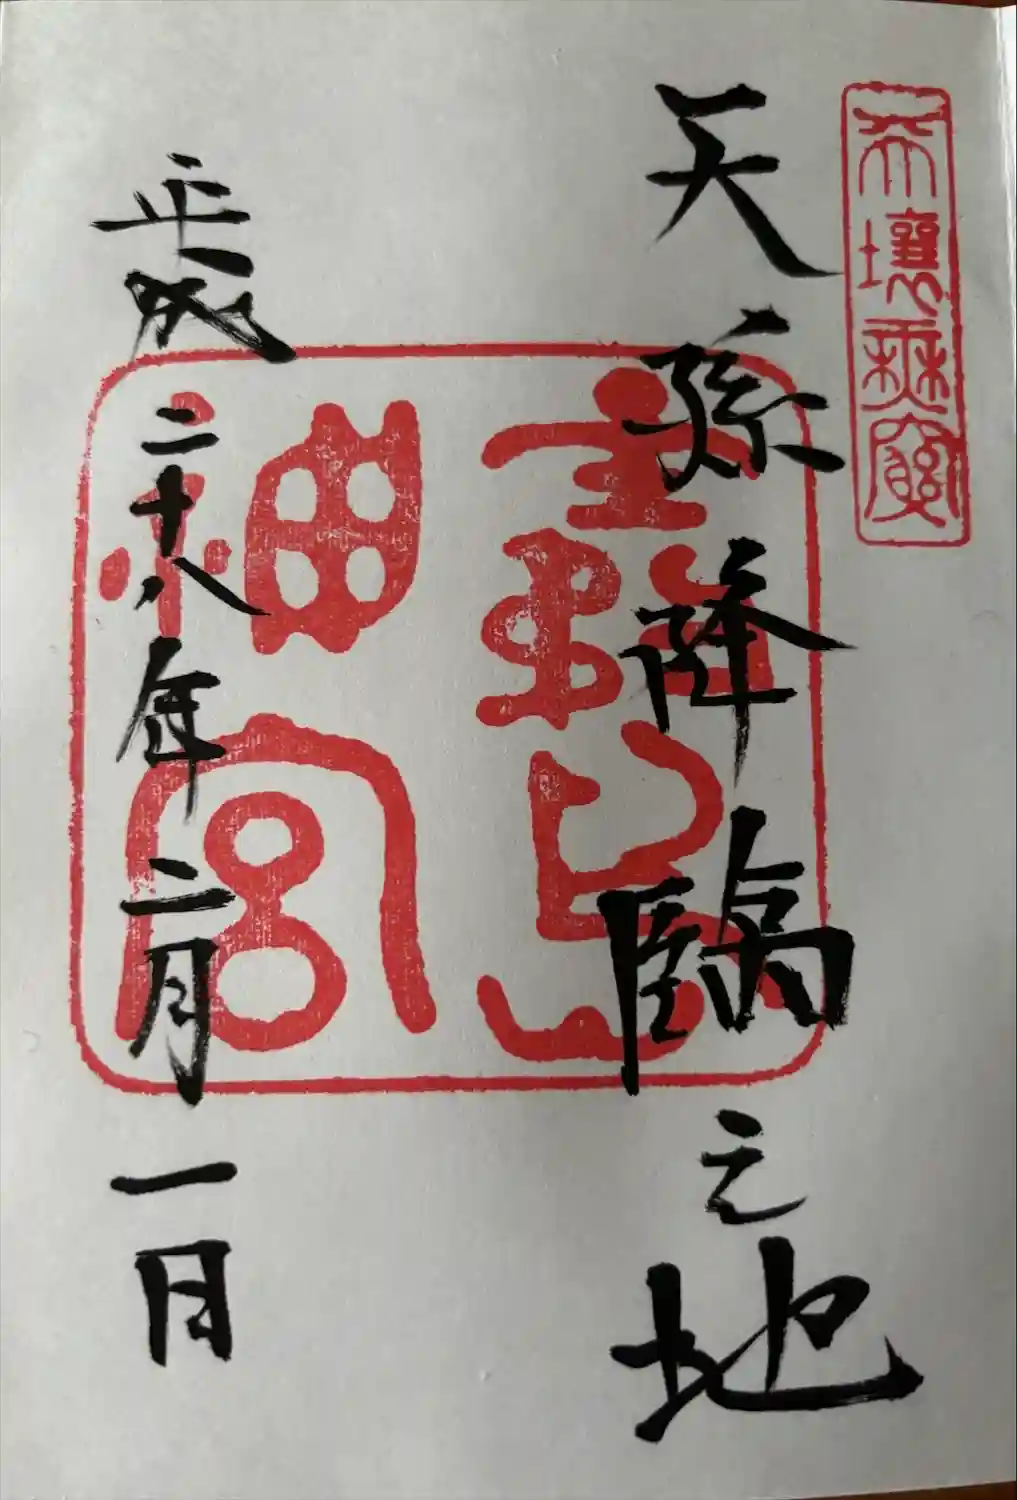 天壌無窮
天孫降臨之地
霧島神宮
平成二十八年二月一日